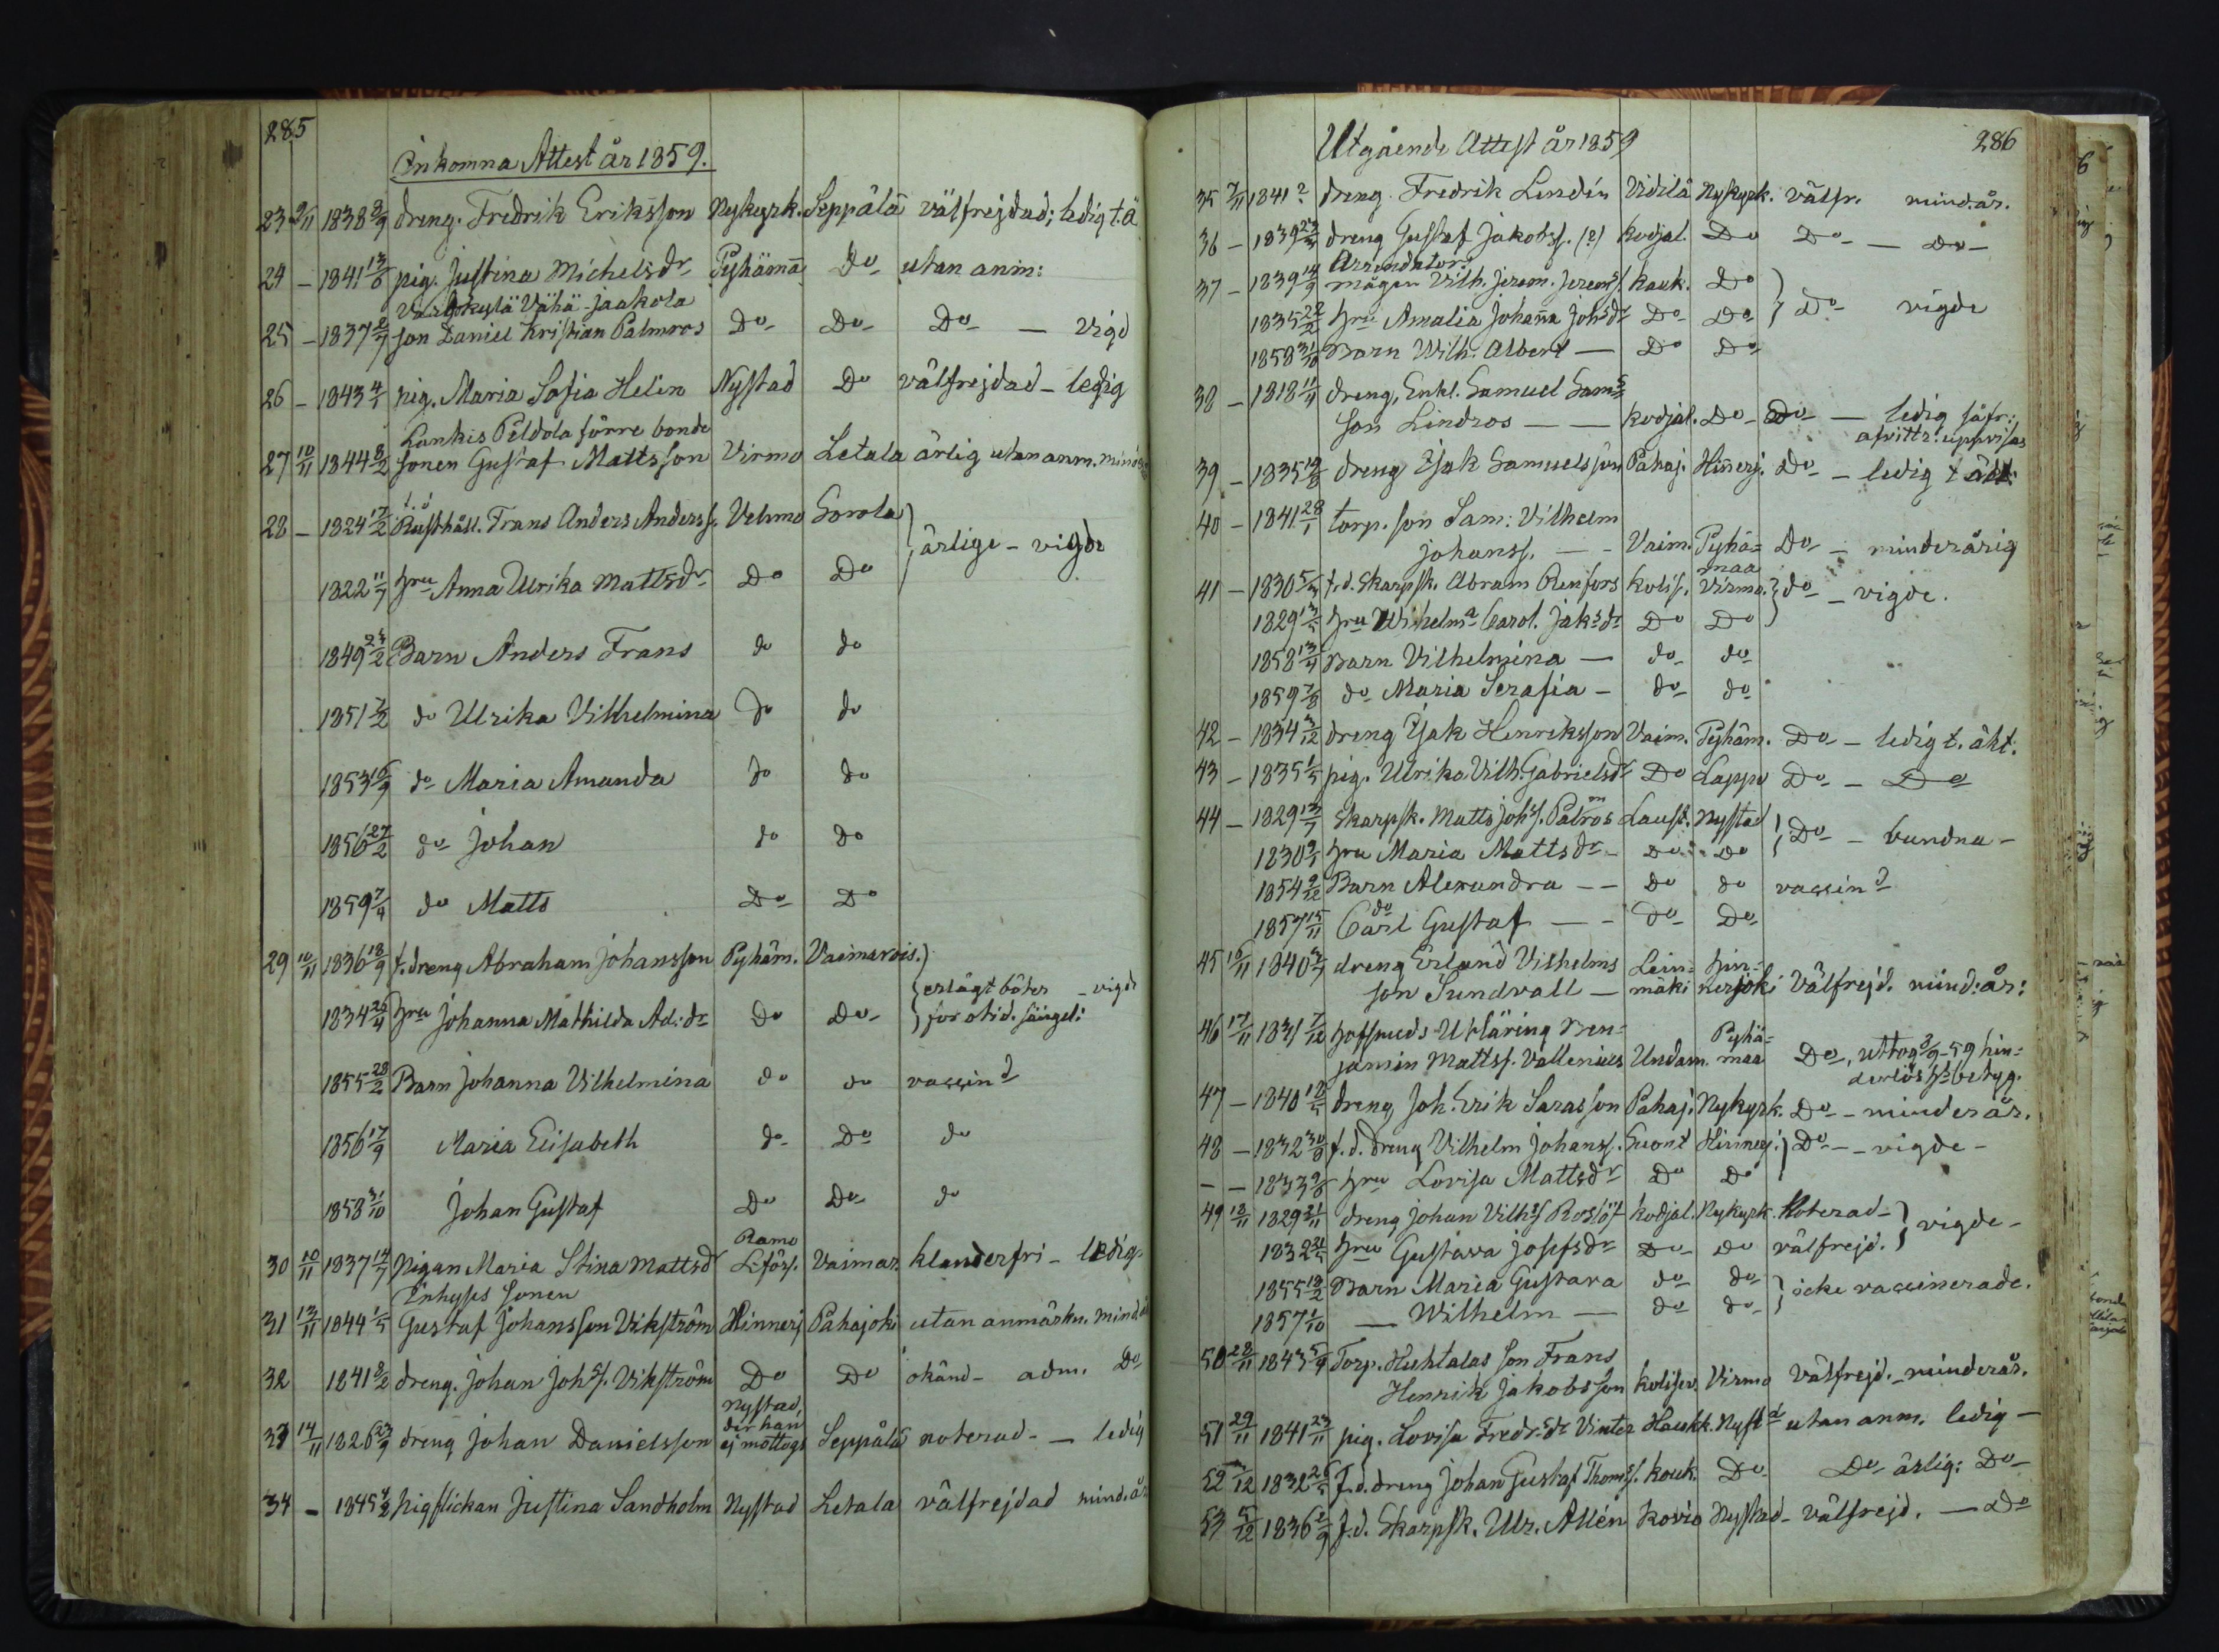 285
Inkomna Attest år 1859.
23 9/11 1838 8/9 dreng. Fredrik Eriksson Nykyrk. Seppälä välfrejdad; ledig t. ä
24 – 1841 13/6 pig. Justina Michelsdr Pyhämä Do utan anm:
Vähä-Jaakola
25 – 1837 2/7 son Daniel Kristian Palmros Do Do Do – vigd
26 – 1843 4/1 pig. Maria Sofia Helin Nystad Do välfrejdad – ledig
Lankis Peldola förre bonde
27 10/11 1844 8/2 sonen Gustaf Mattsson Virmo Letala ärlig utan anm.
f. d
28 – 1824 17/2 Rusthåll. Frans Anders Anderss. Vehmo Sorola
ärlige – vigde
1822 11/7 hru Anna Ulrika Mattsdr Do Do
1849 24/2 Barn Anders Frans do do
1851 7/2 do Ulrika Vilhelmina do do
1853 16/9 do Maria Amanda do do
1856 27/2 do Johan do do
1859 7/4 do Matts Do Do
29 10/11 1836 18/9 f. dreng Abraham Johansson Pyhäm. Vaimarois.
erlägt böter – vigde
1834 25/4 hru Johanna Mathilda Ad:dr Do Do för otid. sängel:
1855 28/2 Barn Johanna Vilhelmina do do vaccind
1856 17/9 Maria Elisabeth do Do do
1858 31/10 Johan Gustaf Do Do do
Ramo
30 10/11 1837 14/7 Pigan Maria Stina Mattsd Vaimar. klanderfri – ledig
Inhyses sonen
31 13/11 1844 1/5 Gustaf Johansson Vikström Hinnerj Pahajoki utan anmärkn.
32 1841 8/2 dreng. Johan Johs. Vikström Do Do okänd – adm. Do
Nystad,
der han
33 14/11 1826 23/9 dreng Johan Danielsson ej mottogs Seppälä noterad – ledig
34 – 1845 4/2 Pigflickan Justina Sandholm Nystad Letala välfrejdad mind.år
Utgående Attest år 1859
286
35 7/11 1841? dreng. Fredrik Lindén Vidilä Nykyrk. välfr. mind.år.
36 – 1839 23/3 dreng Gustaf Jakobss. (?) Kodjal. Do Do – Do –
Arrendator
37 – 1839 14/9 mågen Vilh. Jerem. Jerems. Kauk. Do
1835 22/2 hru Amalia Johanna Johsdr Do Do Do vigde
1858 31/10 Barn Wilh. Albert – Do Do
38 – 1818 11/11 dreng, Enkl. Samuel Sams
son Lindros – – Kodjal. Do Do – ledig
afvittr. uppvisas
39 – 1835 19/8 dreng Isak Samuelsson Pahaj. Hinnerj. Do – ledig t äkt.
40 – 1841 28/1 torp. son Sam: Vilhelm
Johanss. – – Vaim. Pyhä=
maa Do – minderårig
41 – 1830 5/4 f.d. Skarpsk. Abram Renfors Kolis. Virmo. do – vigde.
1829 13/5 hru Wihelma Carol. Jaksdr Do Do
1858 13/4 Barn Vilhelmina – do do
1859 7/8 do Maria Serafia – do do
42 – 1834 3/12 dreng Isak Henriksson Vaim. Pyhäm. Do – ledig t. äkt.
43 – 1835 1/5 pig. Ulrika Vilh. Gabrielsdr Do Lappo Do – Do
44 – 1829 13/7 Skarpsk. Matts Johs. Palmros Laust. Nystad
Do – bundna –
1830 9/1 hru Maria Mattsdr – Do Do
1854 9/12 Barn Alexandra – – Do do vaccind
1857 15/11 do Carl Gustaf – – do Do
45 16/11 1840 2/7 dreng Erland Vilhelms Lein= Hin=
son Sundvall – mäki nerjoki välfrejd. mind:år:
46 17/11 1831 7/12 Ben= Pyhä=
jamin Mattss. Vallenius Undam. maa Do, uttog 3/9–59 hin=
derlöshbetyg.
47 – 1840 18/5 dreng Joh. Erik Sarasson Pahaj. Nykyrk. Do – minderår.
48 – 1832 30/8 f.d. dreng Vilhelm Johanss. Suont Hinnerj. Do – – vigde –
– – 1833 9/8 hru Lovisa Mattsdr Do Do
49 18/11 1829 21/11 dreng Johan Vilhs Roslöf Kodjal. Nykyrk. Noterad –
vigde –
1832 21/5 hru Gustava Josefsdr Do do välfrejd.
1855 18/2 Barn Maria Gustava do do
icke vaccinerade.
1857 1/10 – Wilhelm – do do
50 28/11 1843 5/4 Torp. Huhtalas son Frans
Henrik Jakobsson Kolisev. Virmo välfrejd. – minderår.
51 29/11 1841 23/11 pig. Lovisa Fredr.dr Vinter Haukk. Nystd utan anm. ledig –
52 1/12 1832 26/5 f.d. dreng Johan Gustaf Thoms. Kouk. Do Do ärlig: Do
53 5/12 1836 2/9 f.d. Skarpsk. Ulr. Allén Kovio Nystad – välfrejd. – Do